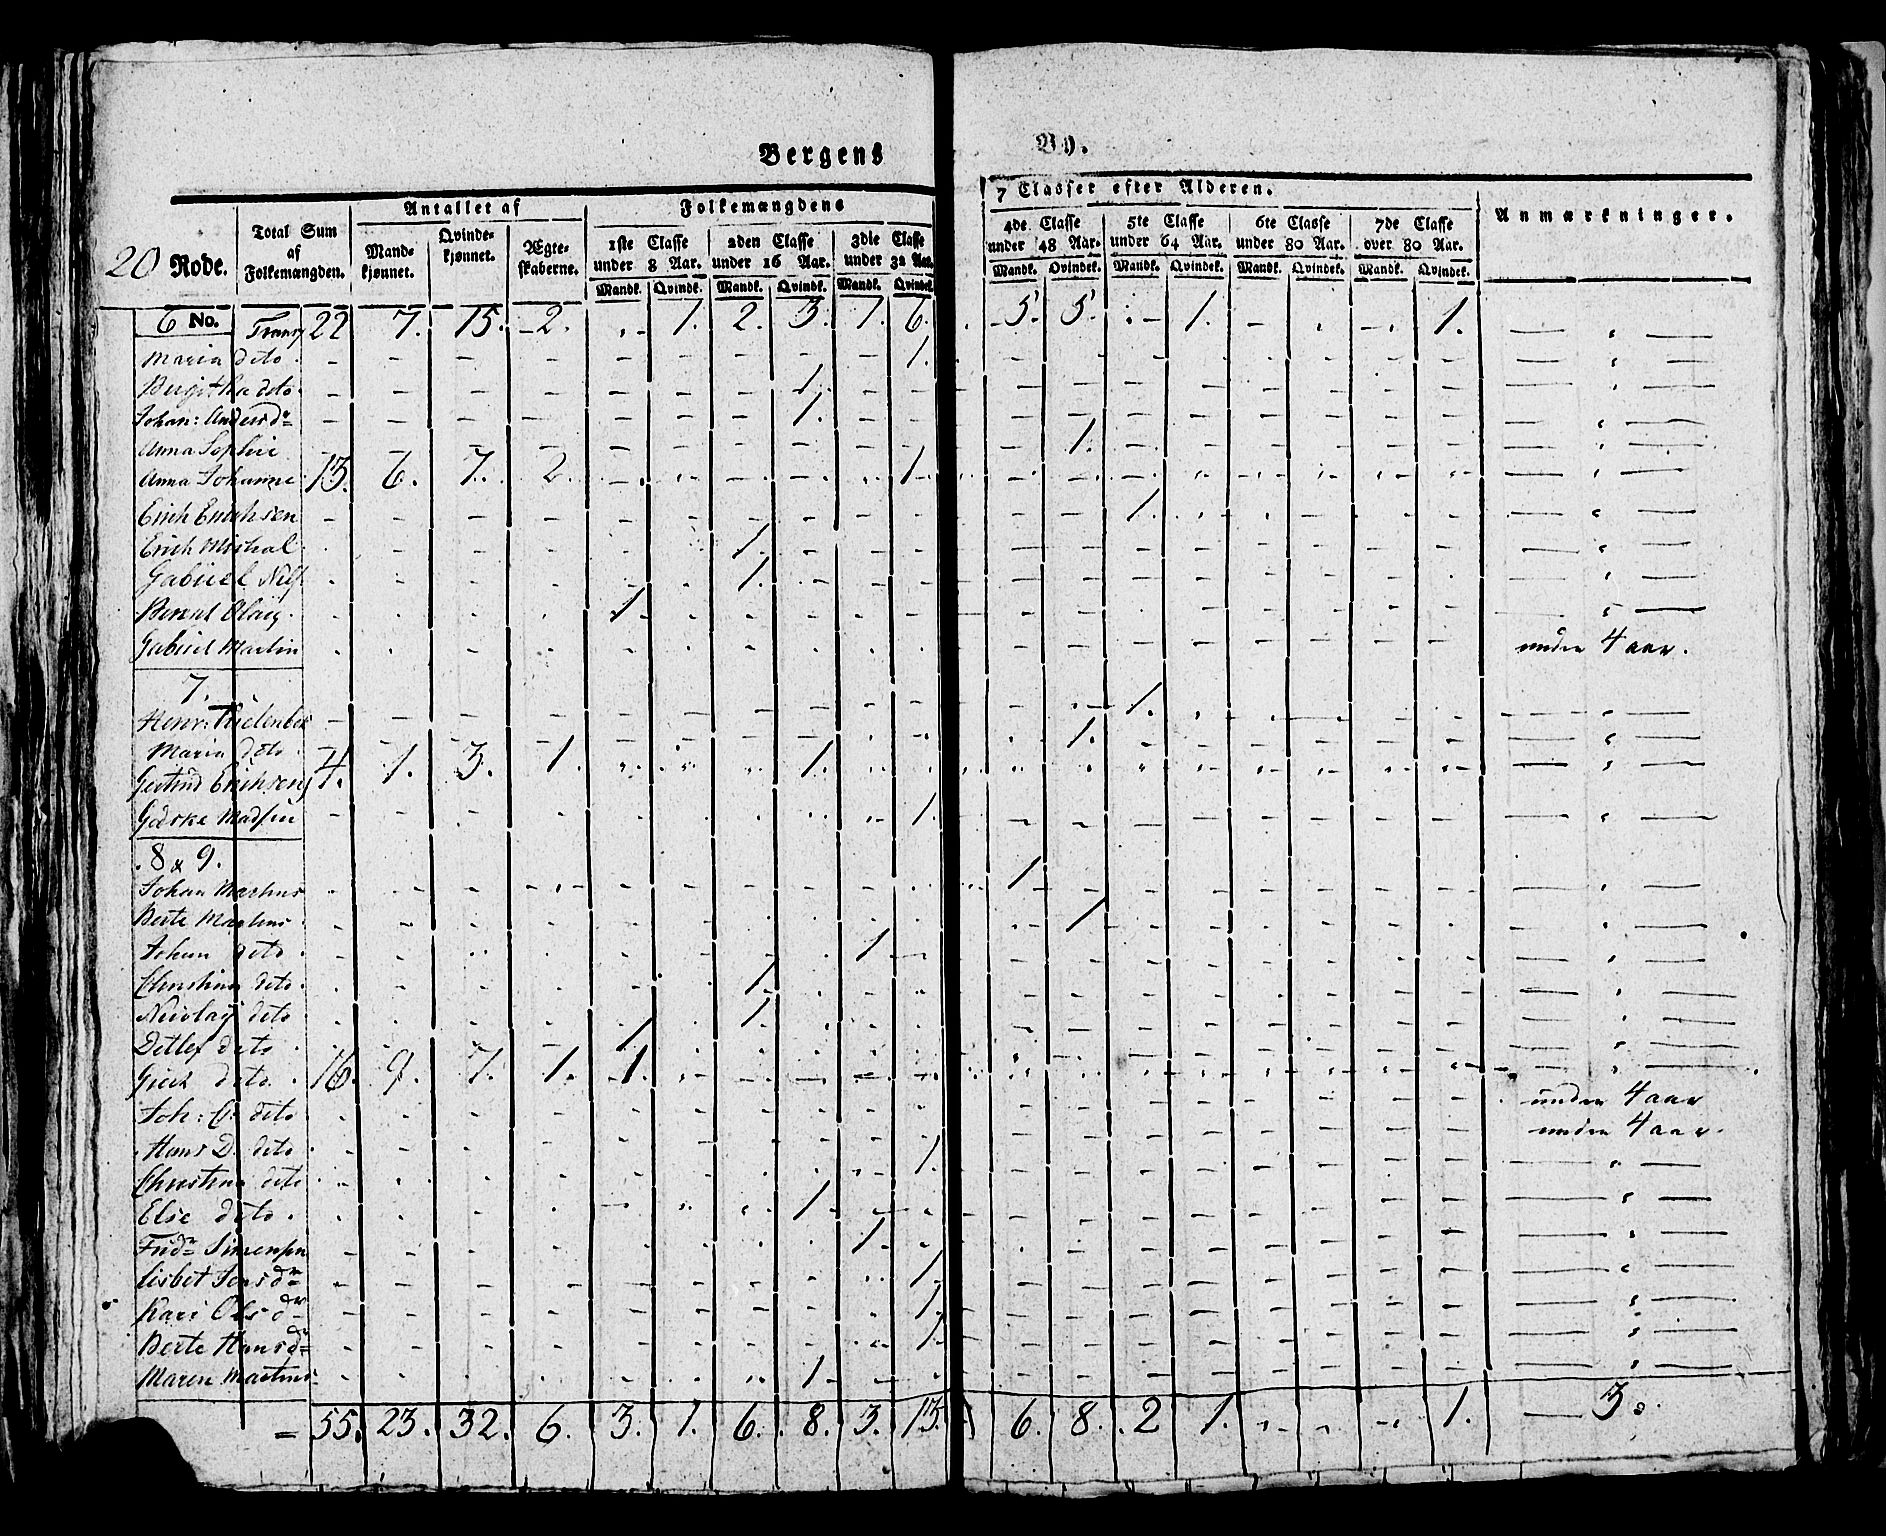 Bergens By.
20 Rode. Total Sum af Folkemængden. Antallet af Mandkjønnet. Qvindekjønnet. Ægteskaberne. Folkemængdens 7 Classer efter Alderen. Anmærkninger.
1ste Classe under 8 Aar. 2den Classe under 16 Aar. 3die Classe under 32 Aar. 4de Classe under 48 Aar. 5te Classe under 64 Aar. 6te Classe under 80 Aar. 7de Classe over 80 Aar.
Mandk. Qvindk. Mandk. Qvindk. Mandk. Qvindek. Mandk. Qvindek. Mandk. Qvindek. Mandk. Qvindek. Mandk. Qvindek.
6 No. Transp 22 7. 15. 2. 1. 2. 3. 1. 6. 5. 5. 1. 1.
Maria dito 1.
Bergitha dito 1.
Johan: Andersdr 1.
Anna Sophie 1.
Anna Johanne 13. 6. 7. 2. 1.
Erich Erichsen 1.
Erich Michal 1.
Gabriel Nils 1.
Bernt Olaig 1.
Gabriel Martin under 4 aar.
7.
Henr: 1.
Maria dito 1.
Gertrud Erichsen 4. 1. 3. 1. 1.
Gjerke Madsen 1.
8 & 9.
Johan Martens 1.
Berte Martens 1
Johan dito 1
Christian dito 1.
Nicolay dito 1.
Detlef dito 1
dito 16. 9. 7. 1. 1.
Joh: C: dito under 4 aar
Hans D. dito under 4 aar.
Christina dito 1.
Else dito 1.
Fridr Simensen 1.
Lisbet Jensdr 1.
Kari Olsdr 1.
Berte Hansdr 1.
Maren Martens 1.
= 55. 23. 32. 6. 3. 1. 6. 8. 3. 13. 6. 8. 2 1. 1. 3